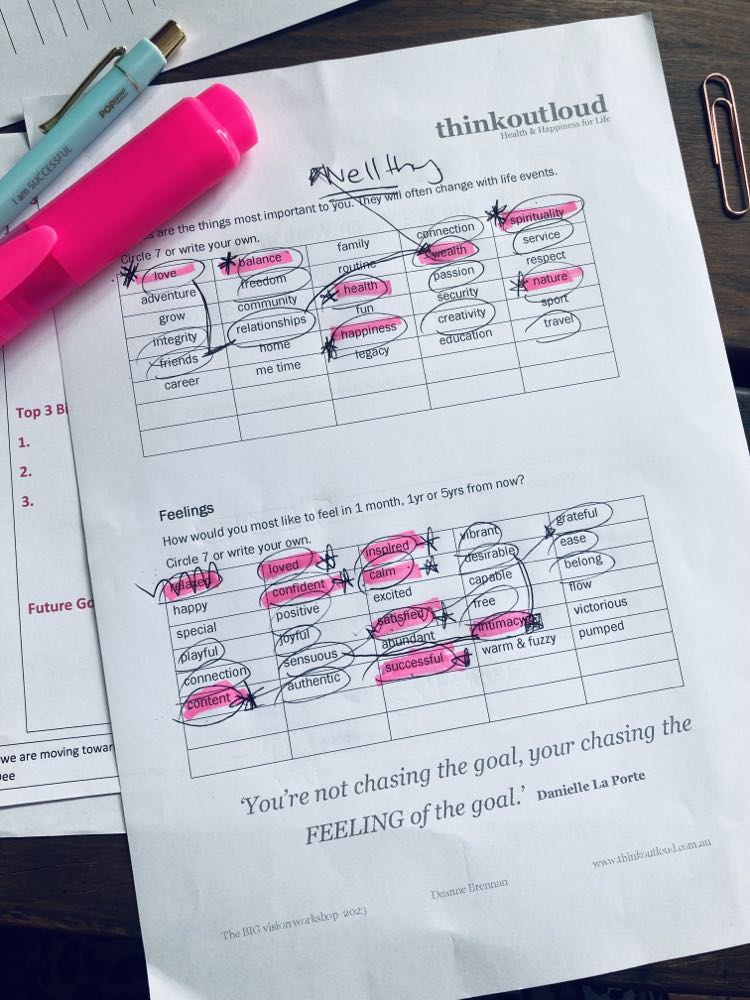 POP
I am SUCCESSFUL
thinkoutloud
Health & Happiness for Life
Wellthy
are the things most important to you. They will often change with life events.
Circle 7 or write your own.
love balance family connection spirituality
adventure freedom routine wealth service
grow community health passion respect
integrity relationships fun security nature
friends home happiness creativity sport
career me time legacy education travel
Top 3 Bi
1.
2.
3.
Future Go
we are moving towar
Feelings
How would you most like to feel in 1 month, 1yr or 5yrs from now?
Circle 7 or write your own.
relaxed loved inspired vibrant grateful
happy confident calm desirable ease
special positive excited capable belong
playful joyful satisfied free flow
connection sensuous abundant intimacy victorious
content authentic successful warm & fuzzy pumped
‘You're not chasing the goal, your chasing the
FEELING of the goal.’ Danielle La Porte
The BIG vision workshop 2023
Deanne Brennan
www.thinkoutloud.com.au